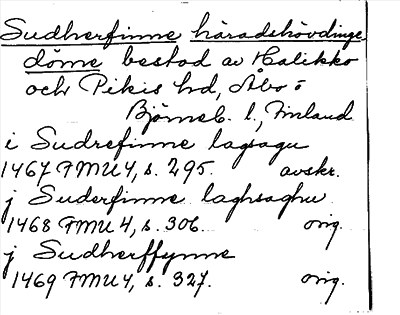 Sudherfinne häradshövdinge
döme bestod av Halikko
och Pikis hd, Åbo o
Björneb. l., Finland
i Sudrefinne lagsagu
1467 FMU 4, s. 295. avskr.
j Suderfinne laghsaghu
1468 FMU 4, s. 306. orig.
j Sudherffynne
1469 FMU 4, s. 327. orig.